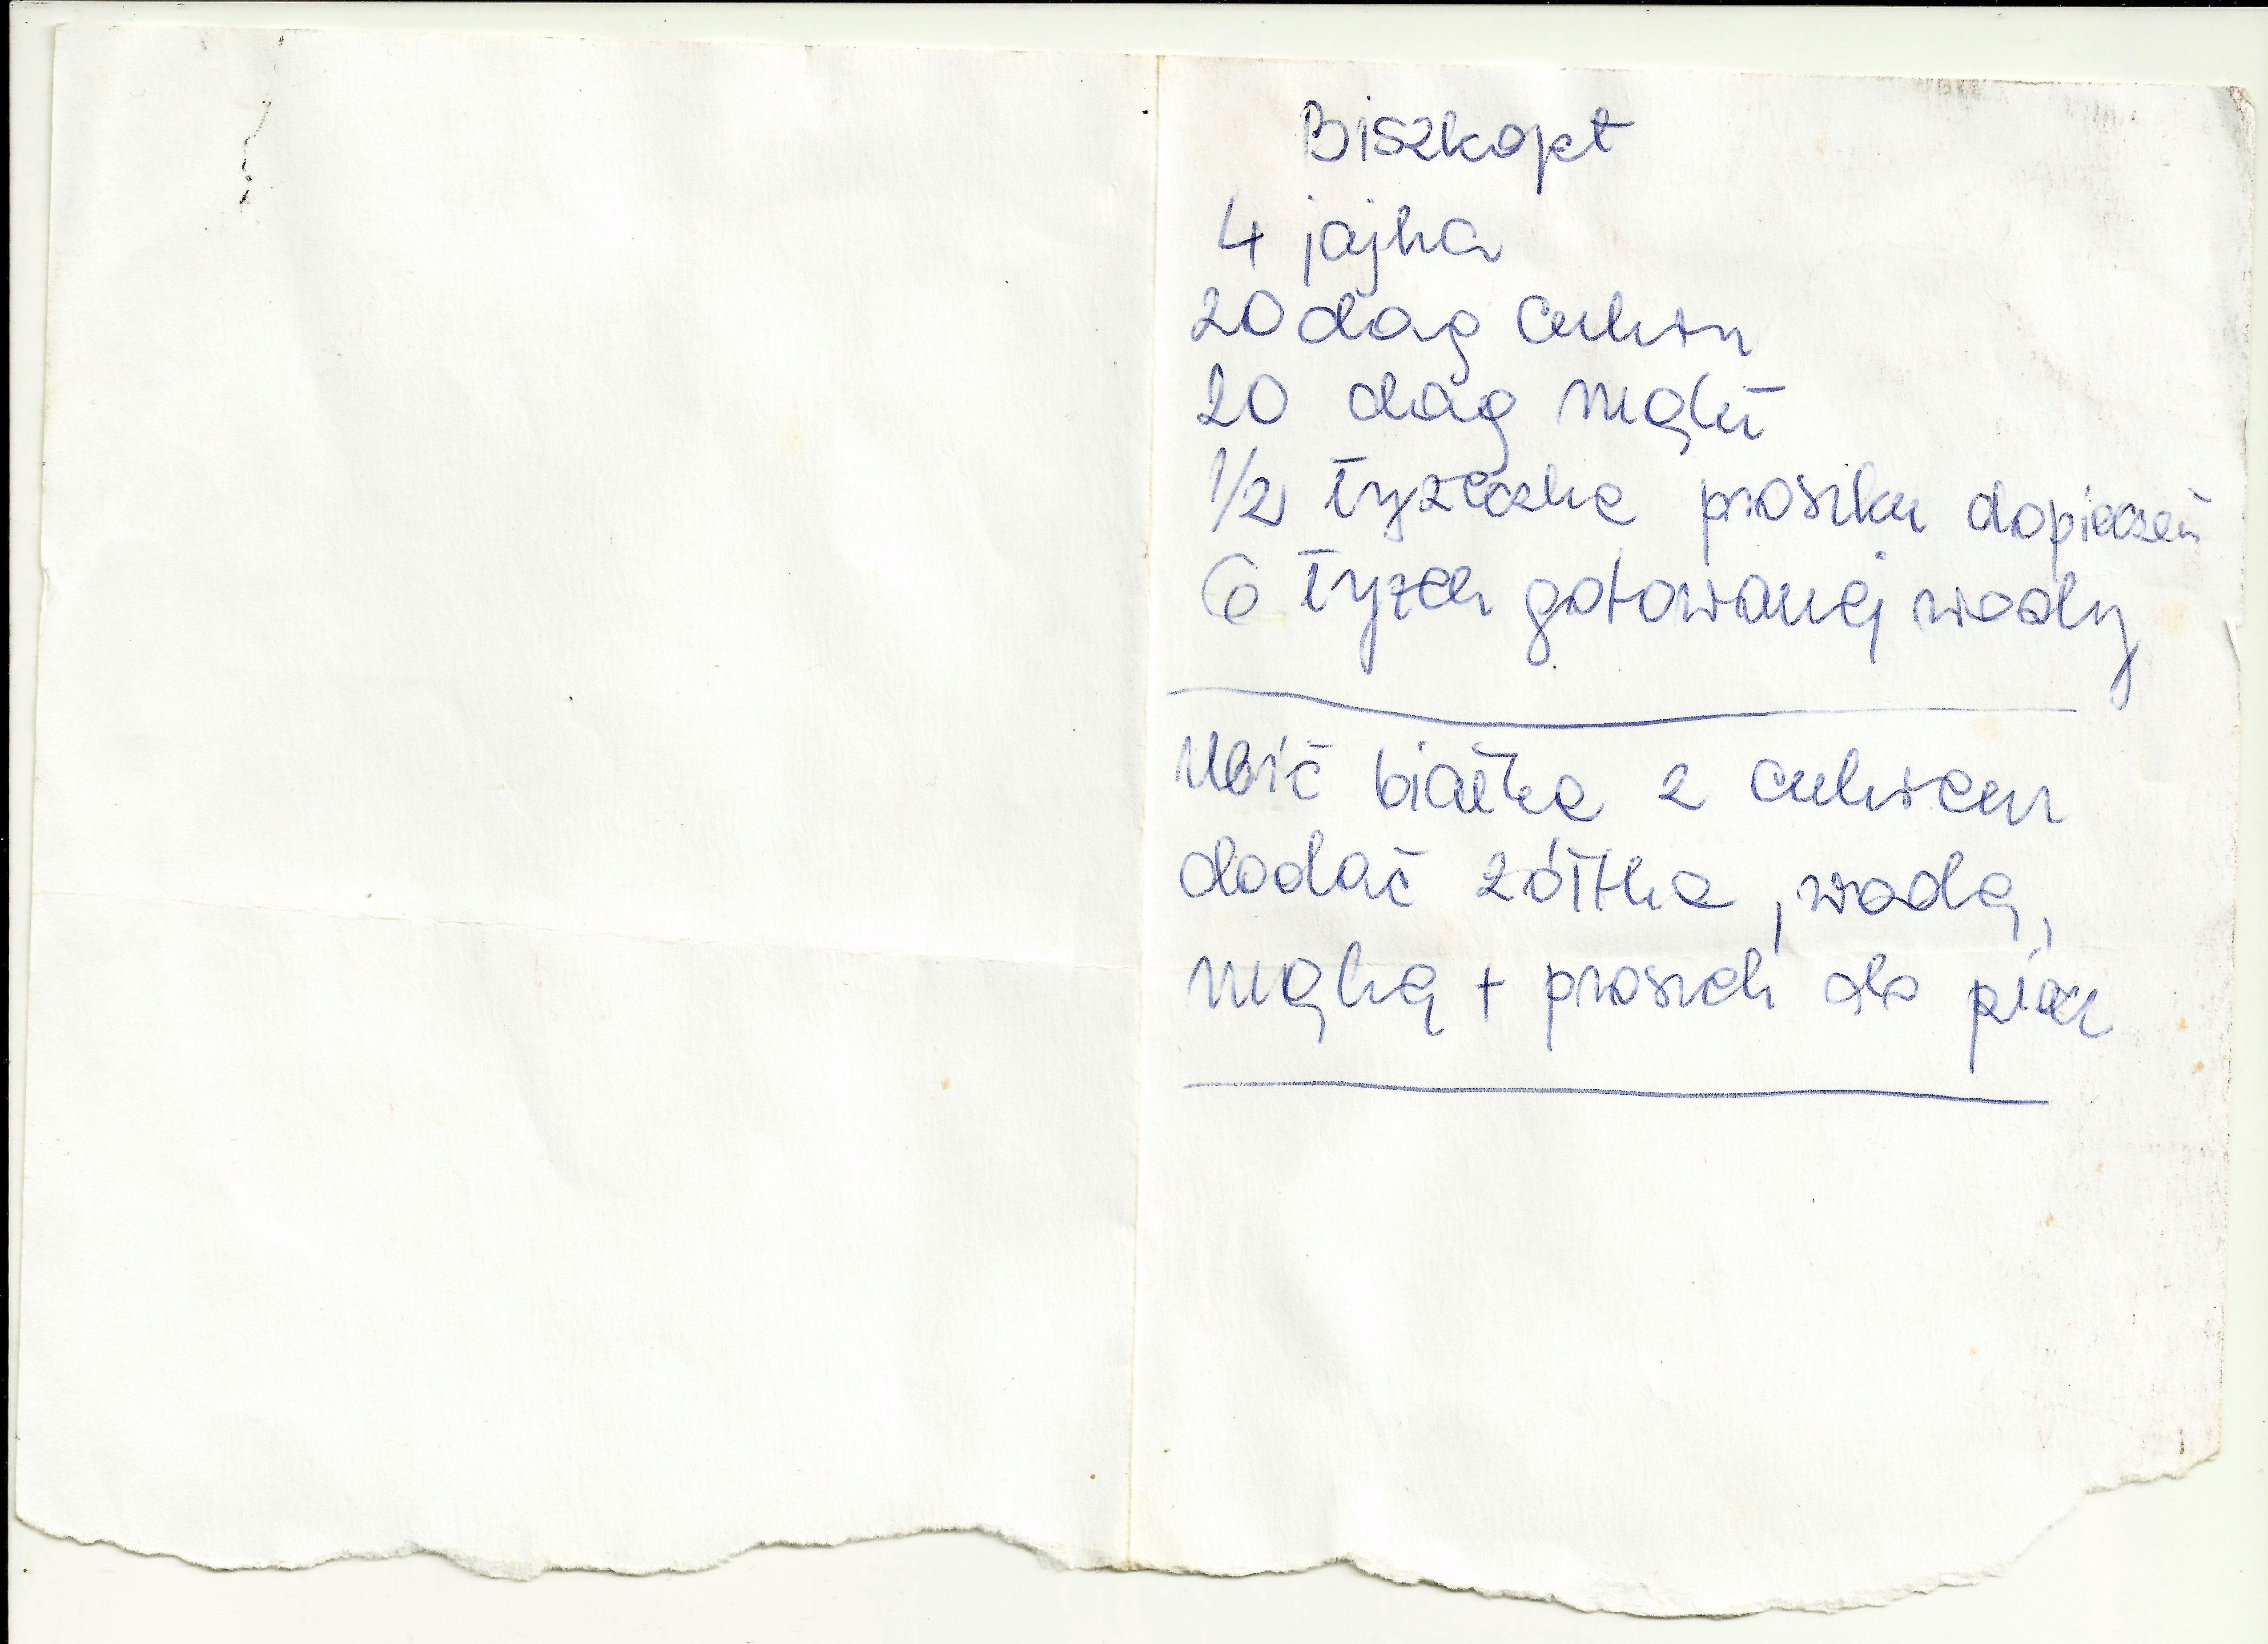 Biszkopt
4 jajka
20 dag cukru
20 dag mąki
1/2 łyżeczke proszku do pieczeń
6 łyżek gotowanej wody
Ubić białka z cukrem
dodać żółtka, wodę,
mąkę + proszek do piecz